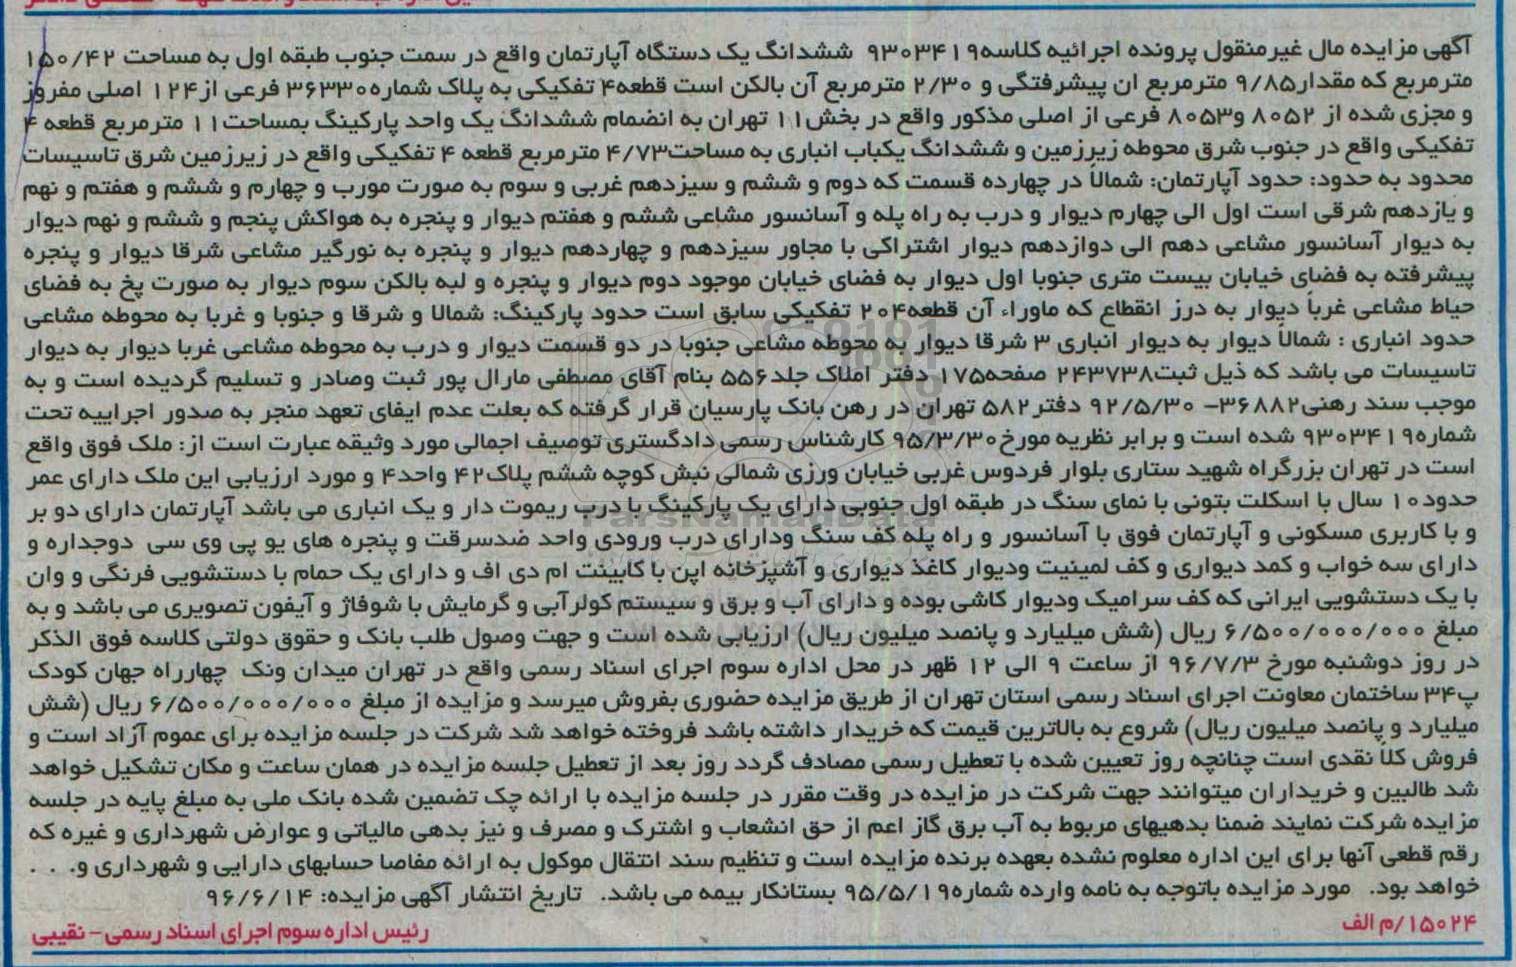 آگهی مزایده مال غیرمنقول پرونده اجرائیه کلاسه۹۳۰۳۴۱۹ ششدانگ یک دستگاه آپارتمان واقع در سمت جنوب طبقه اول به مساحت ۱۵۰/۴۲
مترمربع که مقدار۹/۸۵ مترمربع ان پیشرفتگی و ۲/۳۰ مترمربع آن بالکن است قطعه۴ تفکیکی به پلاک شماره۳۶۳۳۰ فرعی از۱۲۴ اصلی مفروز
و مجزی شده از ۸۰۵۲ و۸۰۵۳ فرعی از اصلی مذکور واقع در بخش۱۱ تهران به انضمام ششدانگ یک واحد پارکینگ بمساحت۱۱ مترمربع قطعه ۴
تفکیکی واقع در جنوب شرق محوطه زیرزمین و ششدانگ یکباب انباری به مساحت۴/۷۳ مترمربع قطعه ۴ تفکیکی واقع در زیرزمین شرق تاسیسات
محدود به حدود: حدود آپارتمان: شمالاً در چهارده قسمت که دوم و ششم و سیزدهم غربی و سوم به صورت مورب و چهارم و ششم و هفتم و نهم
و یازدهم شرقی است اول الی چهارم دیوار و درب به راه پله و آسانسور مشاعی ششم و هفتم دیوار و پنجره به هواکش پنجم و ششم و نهم دیوار
به دیوار آسانسور مشاعی دهم الی دوازدهم دیوار اشتراکی با مجاور سیزدهم و چهاردهم دیوار و پنجره به نورگیر مشاعی شرقا دیوار و پنجره
پیشرفته به فضای خیابان بیست متری جنوبا اول دیوار به فضای خیابان موجود دوم دیوار و پنجره و لبه بالکن سوم دیوار به صورت پخ به فضای
حیاط مشاعی غرباً دیوار به درز انقطاع که ماوراء آن قطعه۲۰۴ تفکیکی سابق است حدود پارکینگ: شمالا و شرقا و جنوبا و غربا به محوطه مشاعی
حدود انباری : شمالاً دیوار به دیوار انباری ۳ شرقا دیوار به محوطه مشاعی جنوبا در دو قسمت دیوار و درب به محوطه مشاعی غربا دیوار به دیوار
تاسیسات می باشد که ذیل ثبت۲۴۳۷۳۸ صفحه۱۷۵ دفتر املاک جلد۵۵۶ بنام آقای مصطفی مارال پور ثبت وصادر و تسلیم گردیده است و به
موجب سند رهنی۳۶۸۸۲- ۹۲/۵/۳۰ دفتر۵۸۲ تهران در رهن بانک پارسیان قرار گرفته که بعلت عدم ایفای تعهد منجر به صدور اجراییه تحت
شماره۹۳۰۳۴۱۹ شده است و برابر نظریه مورخ۹۵/۳/۳۰ کارشناس رسمی دادگستری توصیف اجمالی مورد وثیقه عبارت است از: ملک فوق واقع
است در تهران بزرگراه شهید ستاری بلوار فردوس غربی خیابان ورزی شمالی نبش کوچه ششم پلاک۴۲ واحد۴ و مورد ارزیابی این ملک دارای عمر
حدود۱۰ سال با اسکلت بتونی با نمای سنگ در طبقه اول جنوبی دارای یک پارکینگ با درب ریموت دار و یک انباری می باشد آپارتمان دارای دو بر
و با کاربری مسکونی و آپارتمان فوق با آسانسور و راه پله کف سنگ ودارای درب ورودی واحد ضدسرقت و پنجره های یو پی وی سی دوجداره و
دارای سه خواب و کمد دیواری و کف لمینیت ودیوار کاغذ دیواری و آشپزخانه اپن با کابینت ام دی اف و دارای یک حمام با دستشویی فرنگی و وان
با یک دستشویی ایرانی که کف سرامیک ودیوار کاشی بوده و دارای آب و برق و سیستم کولرآبی و گرمایش با شوفاژ و آیفون تصویری می باشد و به
مبلغ ۶/۵۰۰/۰۰۰/۰۰۰ ریال (شش میلیارد و پانصد میلیون ریال) ارزیابی شده است و جهت وصول طلب بانک و حقوق دولتی کلاسه فوق الذکر
در روز دوشنبه مورخ ۹۶/۷/۳ از ساعت ۹ الی ۱۲ ظهر در محل اداره سوم اجرای اسناد رسمی واقع در تهران میدان ونک چهارراه جهان کودک
پ۳۴ ساختمان معاونت اجرای اسناد رسمی استان تهران از طریق مزایده حضوری بفروش میرسد و مزایده از مبلغ ۶/۵۰۰/۰۰۰/۰۰۰ ریال (شش
میلیارد و پانصد میلیون ریال) شروع به بالاترین قیمت که خریدار داشته باشد فروخته خواهد شد شرکت در جلسه مزایده برای عموم آزاد است و
فروش کلاً نقدی است چنانچه روز تعیین شده با تعطیل رسمی مصادف گردد روز بعد از تعطیل جلسه مزایده در همان ساعت و مکان تشکیل خواهد
شد طالبین و خریداران میتوانند جهت شرکت در مزایده در وقت مقرر در جلسه مزایده با ارائه چک تضمین شده بانک ملی به مبلغ پایه در جلسه
مزایده شرکت نمایند ضمنا بدهیهای مربوط به آب برق گاز اعم از حق انشعاب و اشترک و مصرف و نیز بدهی مالیاتی و عوارض شهرداری و غیره که
رقم قطعی آنها برای این اداره معلوم نشده بعهده برنده مزایده است و تنظیم سند انتقال موکول به ارائه مفاصا حسابهای دارایی و شهرداری و. . .
خواهد بود. مورد مزایده باتوجه به نامه وارده شماره۹۵/۵/۱۹ بستانکار بیمه می باشد. تاریخ انتشار آگهی مزایده: ۹۶/۶/۱۴
۱۵۰۲۴/م الف
رئیس اداره سوم اجرای اسناد رسمی- نقیبی